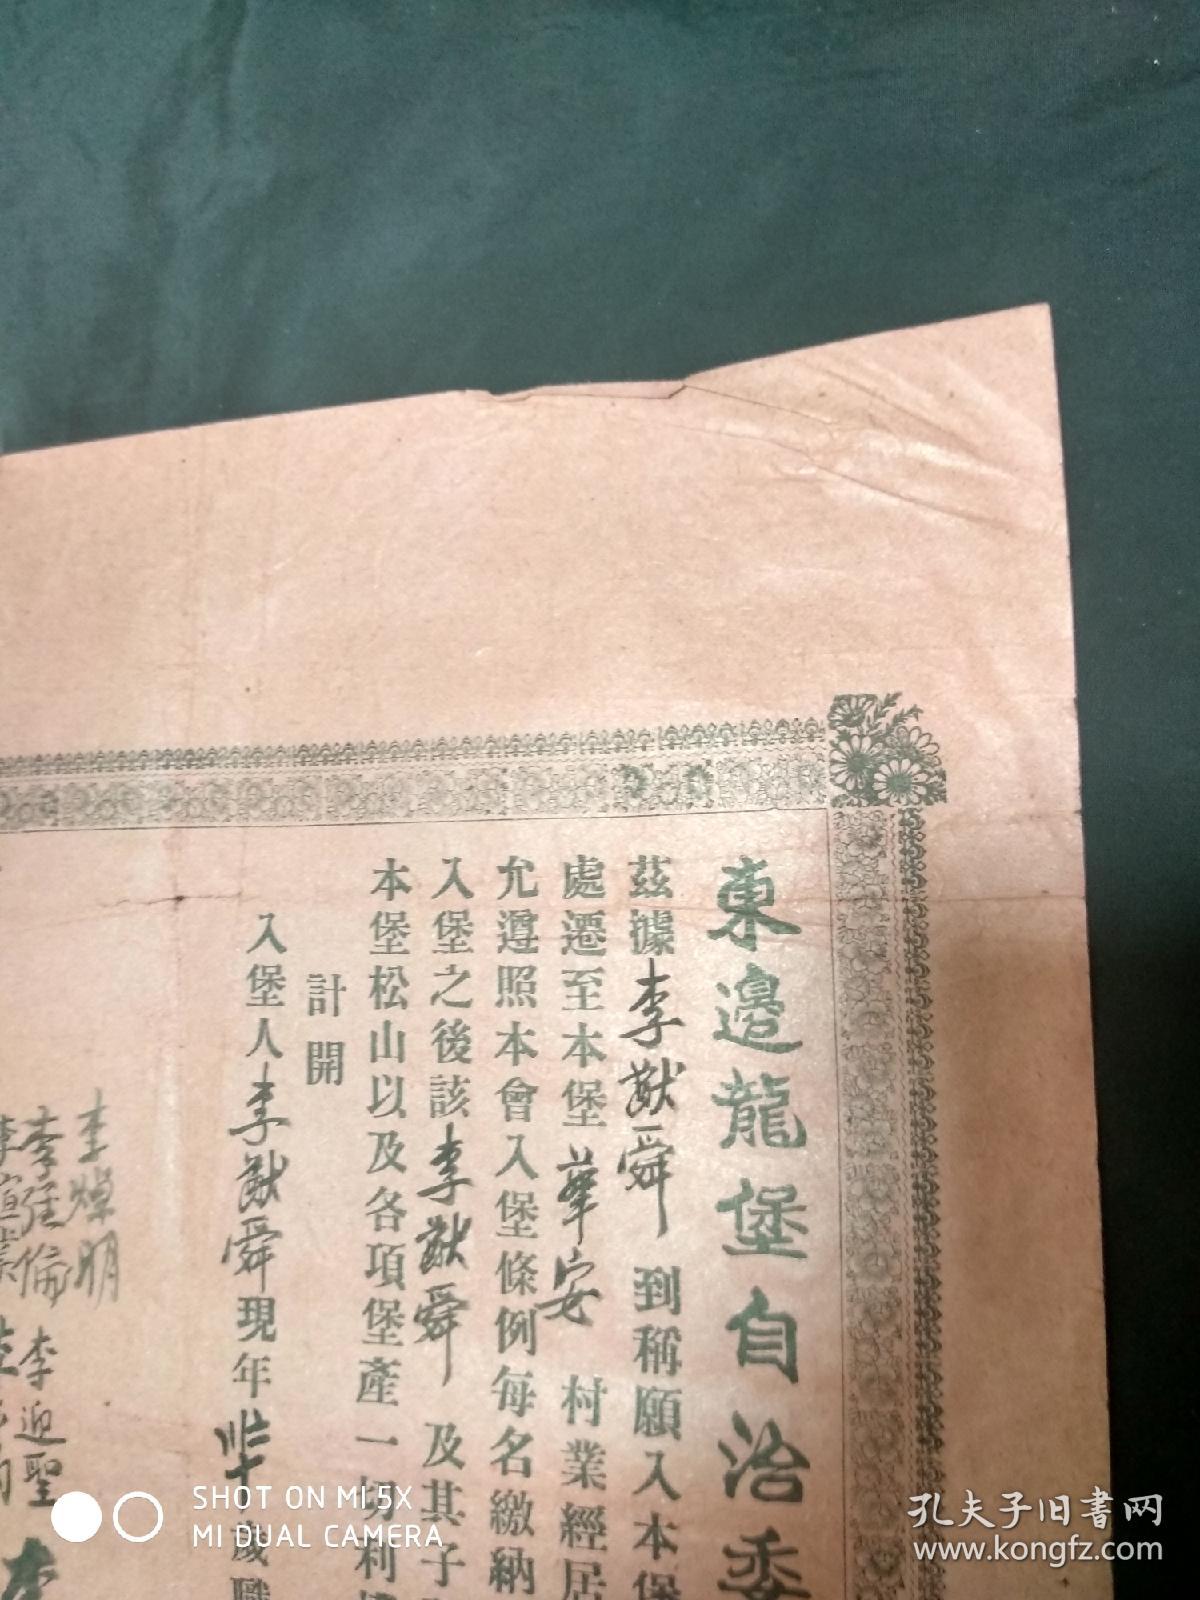 東邉龍堡自治委
茲據李猷舜到稱願入本堡
處遷至本堡華安村業經居
允遵照本會入堡條例每名繳納
入堡之後該李猷舜及其子
本堡松山以及各項堡產一切利
計開
入堡人李猷舜現年卅歲職
李焯明
李迎聖
SHOT ON MI 5X
MI DUAL CAMERA
孔夫子旧书网
www.kongfz.com